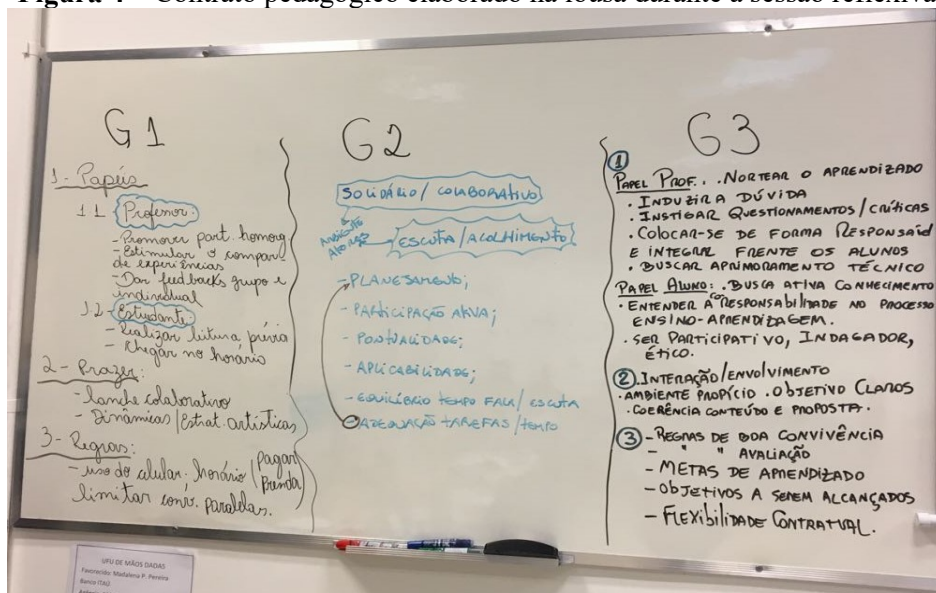 Figura 4 – Contrato pedagógico elaborado na lousa durante a sessão reflexiva
G1
1- Papéis
1.1 Professor:
- Promover part. homog
- Estimular o compart.
de experiências
- Dar feedbacks grupo e
individual
1.2- Estudante:
- Realizar leitura prévia
- Chegar no horário
2- Prazer:
- lanche colaborativo
- Dinâmicas/Estrat. artísticas
3- Regras:
- uso do celular. horário (Pagar
Prenda)
limitar conv. paralelas.
G2
SOLIDÁRIO/ COLABORATIVO
AMBIENTE
ESCUTA/ACOLHIMENTO
- PLANEJAMENTO;
- PARTICIPAÇÃO ATIVA;
- PONTUALIDADE;
- APLICABILIDADE;
- EQUILÍBRIO TEMPO FALA/ ESCUTA
ADEQUAÇÃO TAREFAS/TEMPO
G3
1
PAPEL PROF.: . NORTEAR O APRENDIZADO
. INDUZIR A DÚVIDA
. INSTIGAR QUESTIONAMENTOS/CRÍTICAS
. COLOCAR-SE DE FORMA RESPONSÁVEL
E INTEGRAL FRENTE OS ALUNOS
. BUSCAR APRIMORAMENTO TÉCNICO
PAPEL ALUNO: . BUSCA ATIVA CONHECIMENTO
. ENTENDER A CORESPONSABILIDADE NO PROCESSO
ENSINO-APRENDIZAGEM.
. SER PARTICIPATIVO, INDAGADOR,
ÉTICO.
2 . INTERAÇÃO/ENVOLVIMENTO
. AMBIENTE PROPÍCIO . OBJETIVO CLAROS
. COERÊNCIA CONTEÚDO E PROPOSTA.
3 - REGRAS DE BOA CONVIVÊNCIA
- " " AVALIAÇÃO
- METAS DE APRENDIZADO
- OBJETIVOS A SEREM ALCANÇADOS
- FLEXIBILIDADE CONTRATUAL.
UFU DE MÃOS DADAS
Favorecido: Madalena P. Pereira
Banco ITAÚ